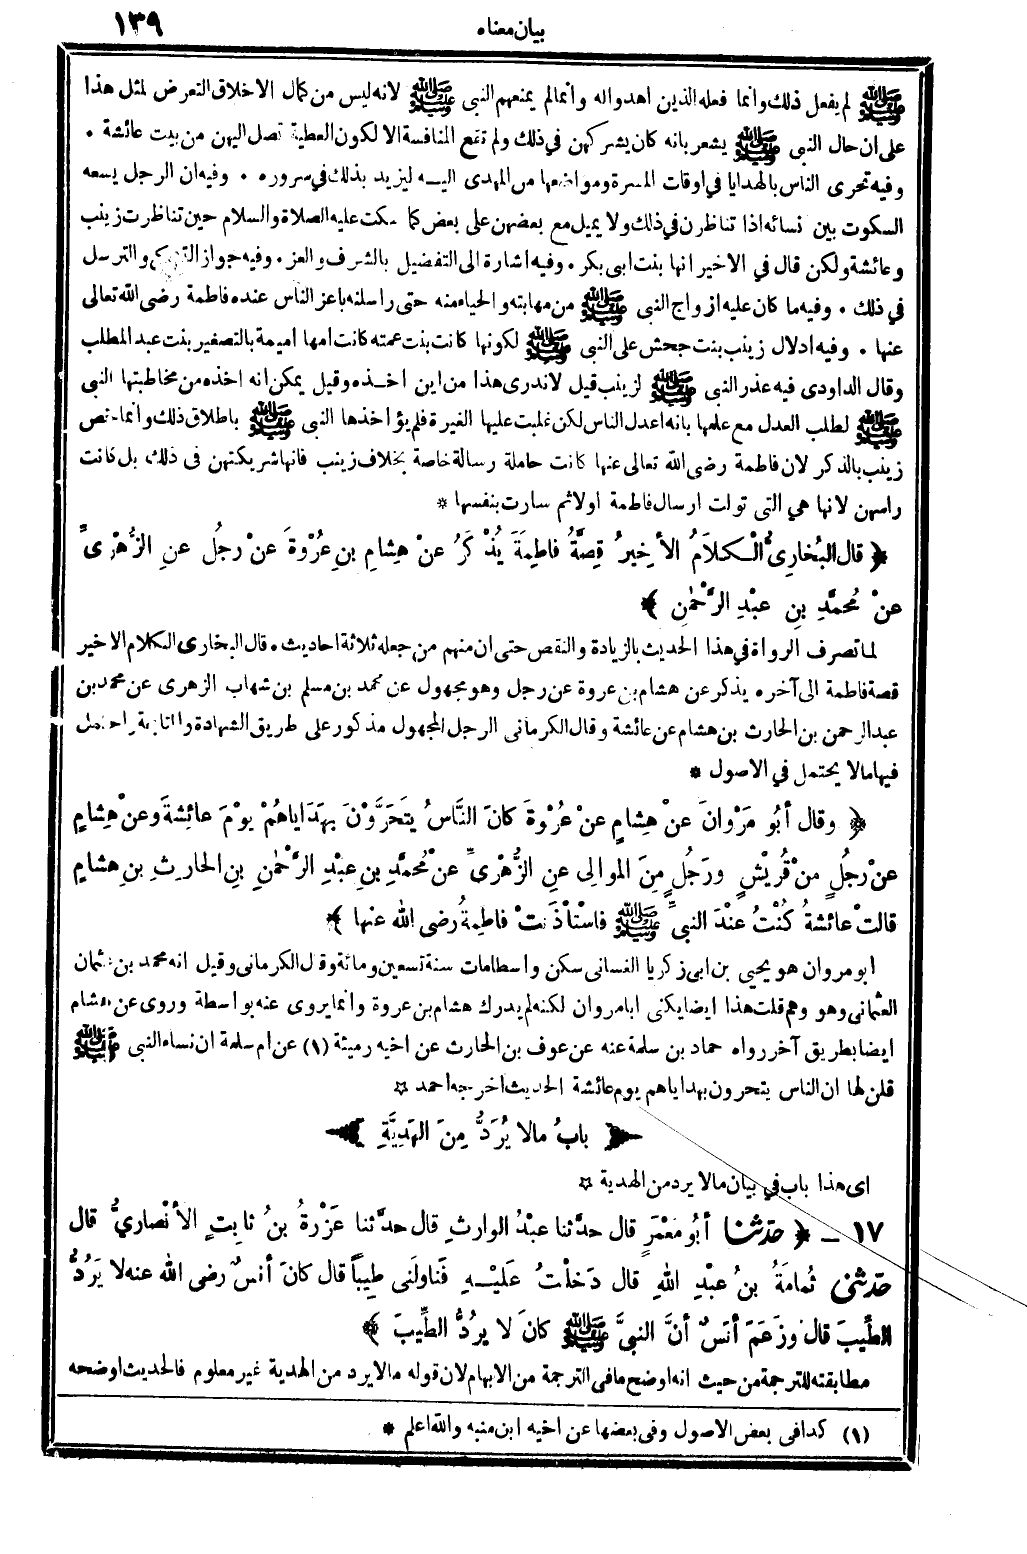 ١٣٩
بيان معناه
ﷺ لم يفعل ذلك وانما فعله الذين اهدوا له وانما لم يمنعهم النبي ﷺ لانه ليس من كمال الاخلاق التعرض لمثل هذا
على ان حال النبي ﷺ يشعر بانه كان يشركهن في ذلك ولم تقع المنافسة الا لكون العطية تصل اليهن من بيت عائشة .
وفيه تحرى الناس بالهدايا في اوقات المسرة ومواضعها من المهدى اليه ليزيد بذلك في سروره . وفيه ان الرجل يسعه
السكوت بين نسائه اذا تناظرن في ذلك ولا يميل مع بعضهن على بعض كما سكت عليه الصلاة والسلام حين تناظرت زينب
وعائشة ولكن قال في الاخير انها بنت ابى بكر . وفيه اشارة الى التفضيل بالشرف والعز . وفيه جواز والترسل
في ذلك . وفيه ما كان عليه ازواج النبي ﷺ من مهابته والحياء منه حتى راسلنه باعز الناس عنده فاطمة رضى الله تعالى
عنها . وفيه ادلال زينب بنت جحش على النبي ﷺ لكونها كانت بنت عمته كانت امها اميمة بالتصغير بنت عبد المطلب
وقال الداودى فيه عذر النبي ﷺ لزينب قيل لا ندرى هذا من اين اخذه وقيل يمكن انه اخذه من مخاطبتها النبي
ﷺ لطلب العدل مع علمها بانه اعدل الناس لكن غلبت عليها الغيرة فلم يؤاخذها النبي ﷺ باطلاق ذلك وانما خص
زينب بالذكر لان فاطمة رضى الله تعالى عنها كانت حاملة رسالة خاصة بخلاف زينب فانها شريكتهن فى ذلك بل كانت
راسهن لانها هي التى تولت ارسال فاطمة اولا ثم سارت بنفسها *
﴿ قال البُخارِىُّ الْكلاَمُ الأخِيرُ قِصَّةُ فاطِمَةَ يُذْكَرُ عنْ هِشامِ بنِ عُرْوةَ عنْ رجُلٍ عنِ الزُّهْرِىِّ
عنْ مُحمَّدِ بنِ عبْدِ الرَّحْمٰنِ ﴾
لما تصرف الرواة في هذا الحديث بالزيادة والنقص حتى ان منهم من جعله ثلاثة احاديث . قال البخارى الكلام الاخير
قصة فاطمة الى آخره يذكر عن هشام بن عروة عن رجل وهو مجهول عن محمد بن مسلم بن شهاب الزهرى عن محمد بن
عبد الرحمن بن الحارث بن هشام عن عائشة وقال الكرمانى الرجل المجهول مذكور على طريق الشهادة والمتابعة واحتمل
فيها ما لا يحتمل في الاصول *
﴿ وقال أبُو مَرْوانَ عنْ هِشامٍ عنْ عُرْوةَ كانَ النَّاسُ يتَحَرَّوْنَ بِهدَاياهُمْ يوْمَ عائِشةَ وعنْ هِشامٍ
عنْ رجُلٍ مِنْ قُريْشٍ ورَجُلٍ مِنَ الموالِى عنِ الزُّهْرىِّ عنْ مُحمَّدِ بنِ عبْدِ الرَّحْمٰنِ بنِ الحارِثِ بنِ هِشامٍ
قالتْ عائشةُ كُنْتُ عنْدَ النبيِّ ﷺ فاسْتأْذَنتْ فاطِمةُ رضى الله عنها ﴾
ابو مروان هو يحيى بن ابى زكريا الغسانى سكن واسط مات سنة تسعين ومائة وقال الكرمانى وقيل انه محمد بن عثمان
العثمانى وهو وهم قلت هذا ايضا يكنى ابا مروان لكنه لم يدرك هشام بن عروة وانما يروى عنه بواسطة وروى عن هشام
ايضا بطريق آخر رواه حماد بن سلمة عنه عن عوف بن الحارث عن اخيه رميثة (١) عن ام سلمة ان نساء النبى ﷺ
قلن لها ان الناس يتحرون بهداياهم يوم عائشة الحديث اخرجه احمد *
﴿ بابُ مالا يُرَدُّ مِنَ الهَدِيَّةِ ﴾
اى هذا باب في بيان مالا يرد من الهدية *
١٧ ــ ﴿ حدّثنا أبُو مَعْمَرٍ قال حدّثنا عبْدُ الوارِثِ قال حدّثنا عَزْرةُ بنُ ثابِتٍ الأنْصارِيُّ قال
حدّثنى ثُمامَةُ بنُ عبْدِ اللهِ قال دَخلْتُ عَليْهِ فَناولَنى طِيباً قال كانَ أنَسٌ رضى الله عنه لا يَرُدُّ
الطِّيبَ قال وزَعَمَ أنَسٌ أنَّ النبيَّ ﷺ كانَ لا يَرُدُّ الطِّيبَ ﴾
مطابقته للترجمة من حيث انه اوضح ما فى الترجمة من الابهام لان قوله مالا يرد من الهدية غير معلوم فالحديث اوضحه
(١) كذا فى بعض الاصول وفى بعضها عن اخيه ابن منبه والله اعلم *